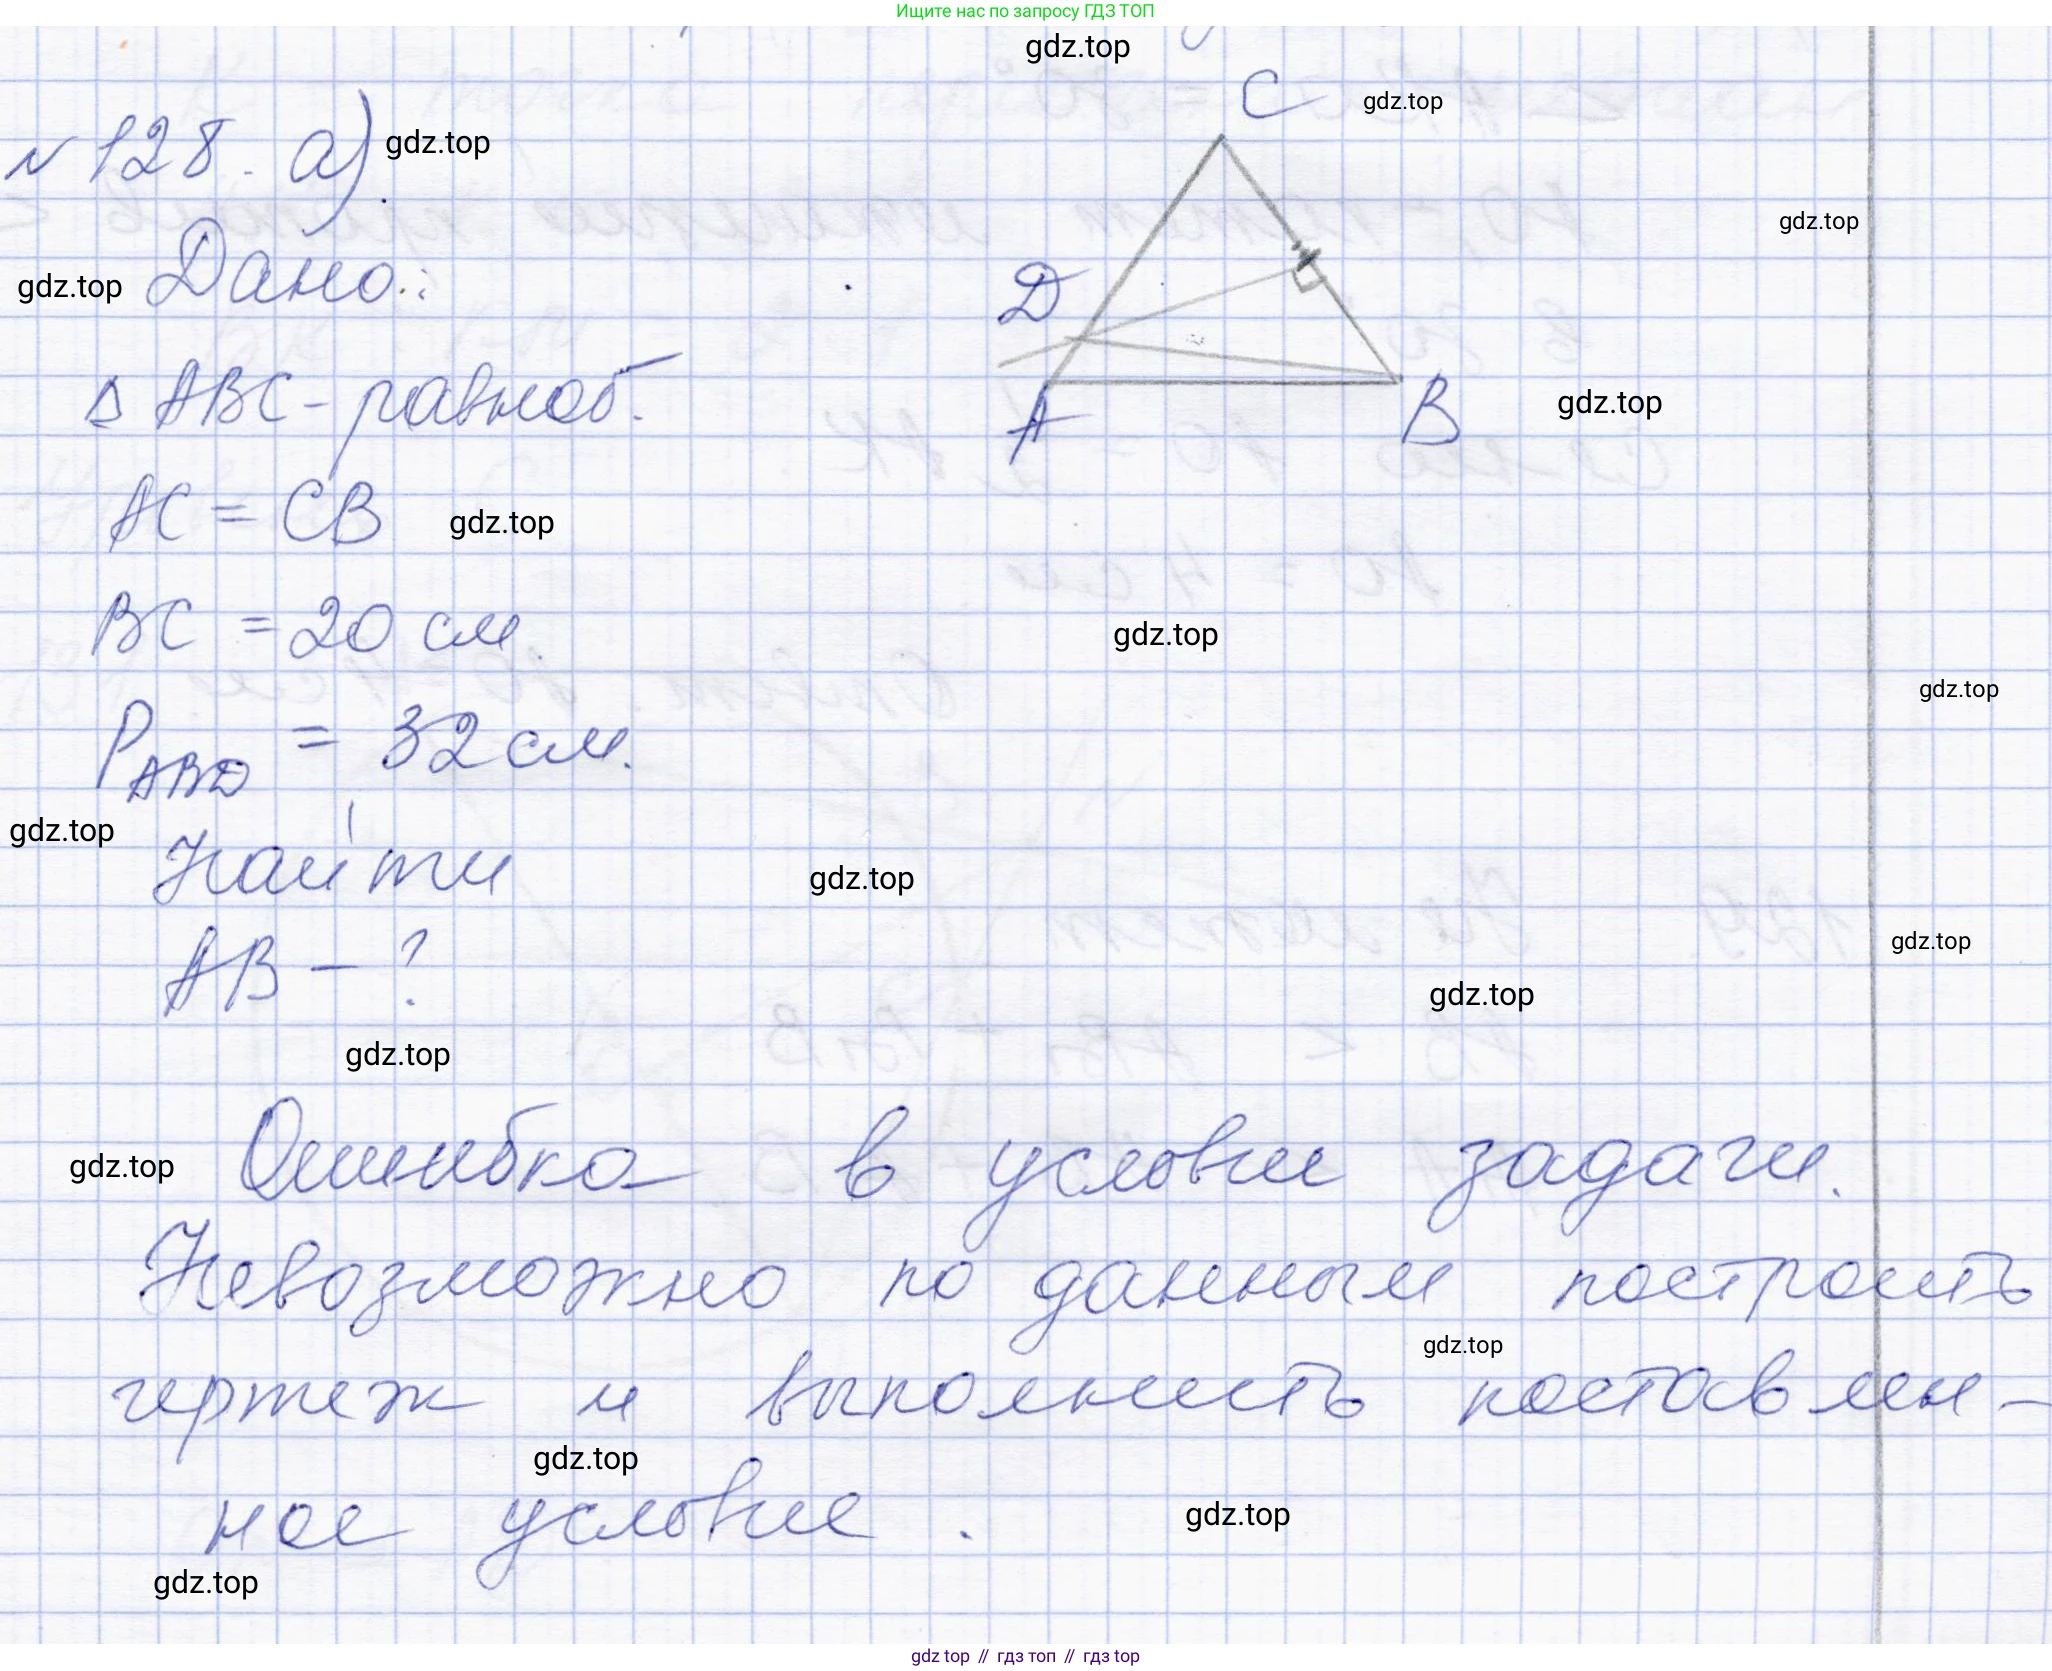 Ищите нас по запросу ГДЗ ТОП
gdz.top
C
gdz.top
№ 128. а)
gdz.top
gdz.top
Дано:
gdz.top
D
Δ ABC - равноб.
A
B
gdz.top
AC = CB
gdz.top
BC = 20 см
gdz.top
gdz.top
P ABD = 32 см.
gdz.top
Найти
gdz.top
gdz.top
AB - ?
gdz.top
gdz.top
gdz.top
Ошибка в условии задачи.
Невозможно по данным построить
gdz.top
чертеж и выполнить поставлен-
gdz.top
ное условие.
gdz.top
gdz.top
gdz.top // гдз топ // гдз top